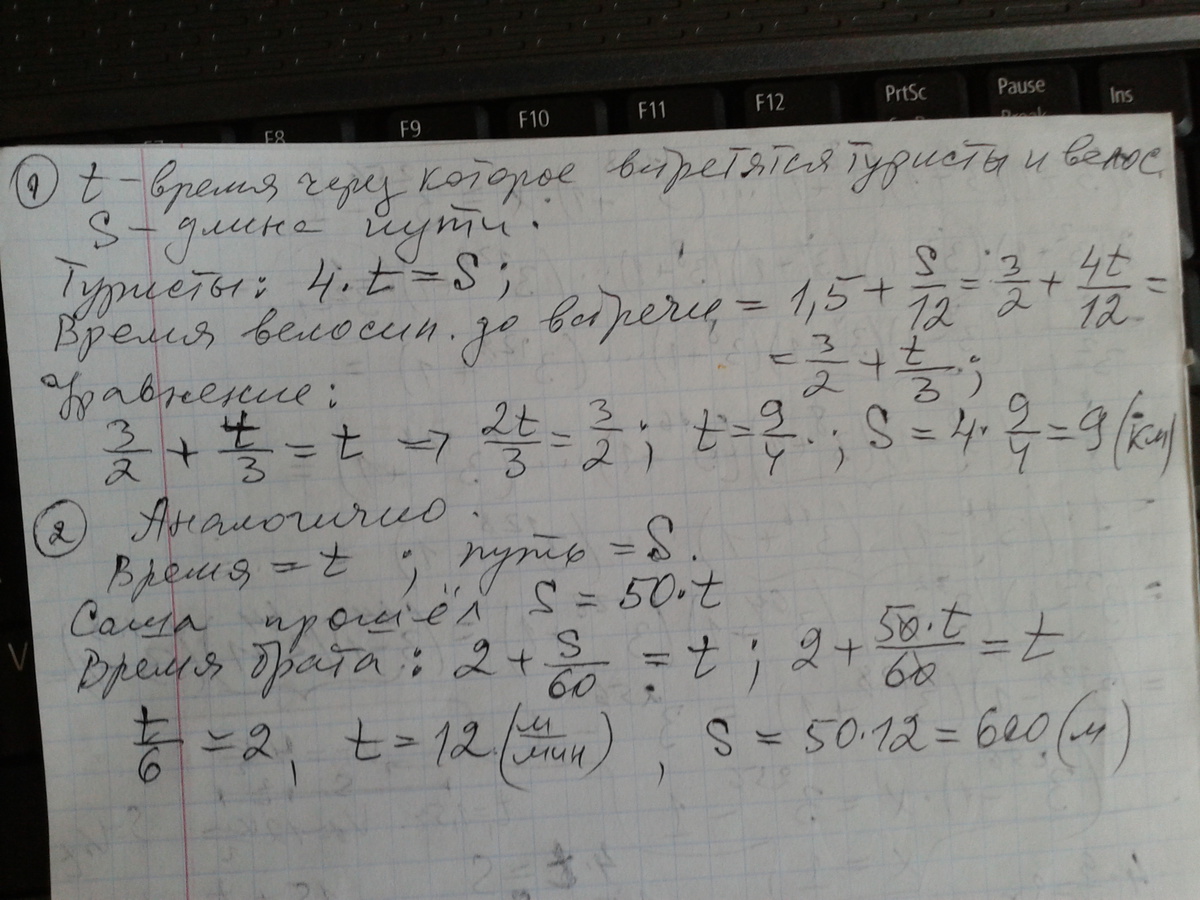 F8 F9 F10 F11 F12 PrtSc Pause Ins
① t – время через которое встретятся туристы и велос.
S – длина пути.
Туристы: 4·t = S;
Время велосип. до встречи = 1,5 + S/12 = 3/2 + 4t/12 =
= 3/2 + t/3;
Уравнение:
3/2 + t/3 = t => 2t/3 = 3/2; t = 9/4; S = 4·9/4 = 9 (км)
② Аналогично.
Время = t; путь = S.
Саша прошёл S = 50·t
Время брата: 2 + S/60 = t; 2 + 50·t/60 = t
t/6 = 2; t = 12 (м/мин), S = 50·12 = 600 (м)